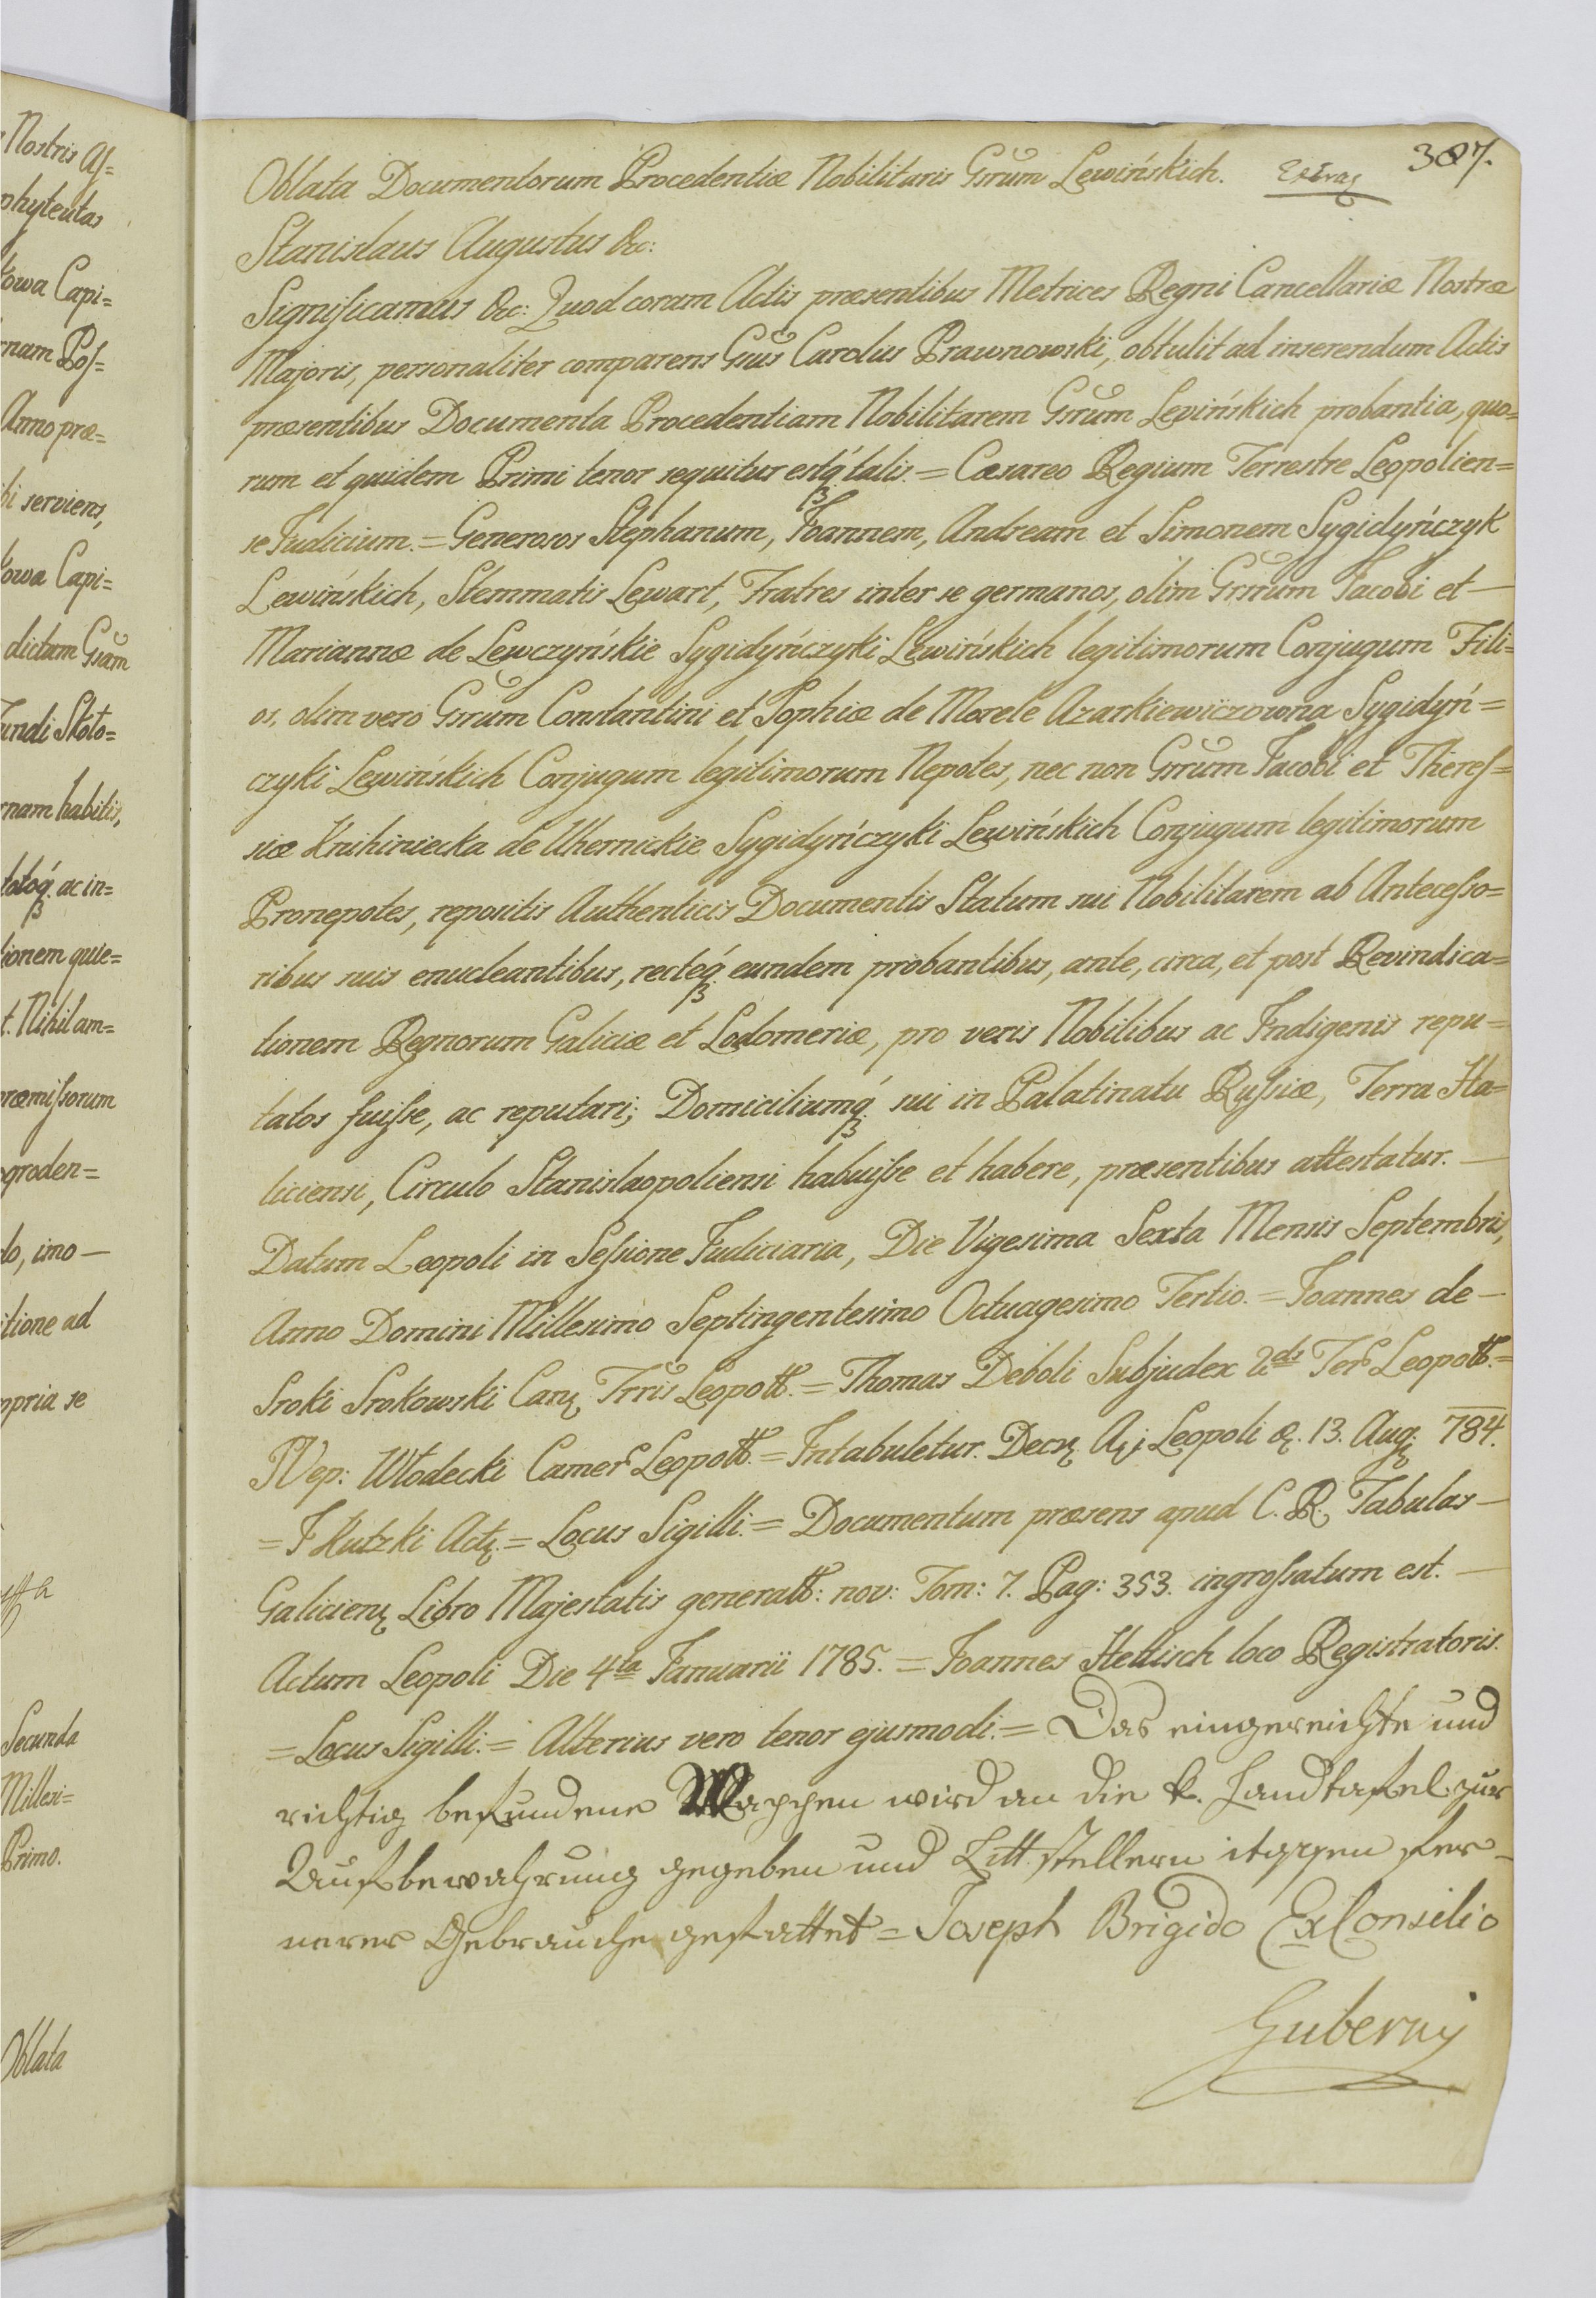 Nostris Aſ=
phyteutas
kowa Capi=
rnam Poſ=
Anno præ=
ibi serviens,
kowa Capi=
dictam Gsam
Fundi Skoto=
rnam habilis,
totoq́ꝫ ac in=
tionem quie=
t. Nihil am=
præmiſsorum
ogroden=
do, imo —
itione ad
mpria se
Secunda
Milleri=
Primo.
Oblata
Oblata Documentorum Procedentiæ Nobilitaris Gsrum Lewińskich. Extrag 387.
Stanislaus Augustus &c:
Significamus &c: Quod coram Actis præsentibus Metrices Regni Cancellariæ Nostræ
Majoris, personaliter comparens Gsus Carolus Prawnowski, obtulit ad inserendum Actis
præsentibus Documenta Procedentiam Nobilitarem Gsrum Levińskich probantia, quo=
rum et quidem Primi tenor sequitur estq́ꝫ talis. = Cæsareo Regium Terrestre Leopolien=
se Judicium. = Generosos Stephanum, Joannem, Andream et Simonem Sygidyńczyk
Lewińskich, Stemmatis Lewart, Fratres inter se germanos, olim Gsrum Jacobi et —
Mariannæ de Lewczyńskie Sygidyńczyki Lewińskich legitimorum Conjugum Fili=
os, olim vero Gsrum Constantini et Sophiæ de Morele Azarkiewiczowna Sygidyń=
czyki Lewińskich Conjugum legitimorum Nepotes, nec non Gsrum Jacobi et Thereſ=
siæ Knihiniecka de Uhernickie Sygidyńczyki Lewińskich Conjugum legitimorum
Pronepotes, repositis Authenticis Documentis Statum sui Nobilitarem ab Anteceſso=
ribus suis enucleantibus, recteq́ꝫ eundem probantibus, ante, circa, et post Revindica=
tionem Regnorum Galiciæ et Lodomeriæ, pro veris Nobilibus ac Indigenis repu=
tatos fuiſse, ac reputari; Domiciliumq́ꝫ sui in Palatinatu Ruſsiæ, Terra Ha=
liciensi, Circulo Stanislaopoliensi habuiſse et habere, præsentibus attestatur. —
Datum Leopoli in Seſsione Judiciaria, Die Vigesima Sexta Mensis Septembris,
Anno Domini Millesimo Septingentesimo Octuagesimo Tertio. = Joannes de —
Sroki Srokowski Canꝫ Trris Leopoltt. = Thomas Deboli Subjudex Terr Leopoltt. =
Wlodecki Camer Leopoltt. = Intabuletur. Leopoli 13. Aug: 784.
= J Kutzki Actꝫ = Locus Sigilli. = Documentum præsens apud C. R. Tabulas —
Galicienꝫ Libro Majestatis generaltt: nov: Tom: 7. Pag: 353. ingroſsatum est. —
Actum Leopoli Die 4ta Januarii 1785. = Joannes Hettisch loco Registratoris.
= Locus Sigilli. = Alterius vero tenor ejusmodi. = Das eingereichte und
richtig befundene Wappen wird an die k. Landtafel zur
Aufbewahrung gegeben und Bittstellern itzgen fer-
nerer Gebrauche gestattet = Joseph Brigido Ex Consilio
Gubernij